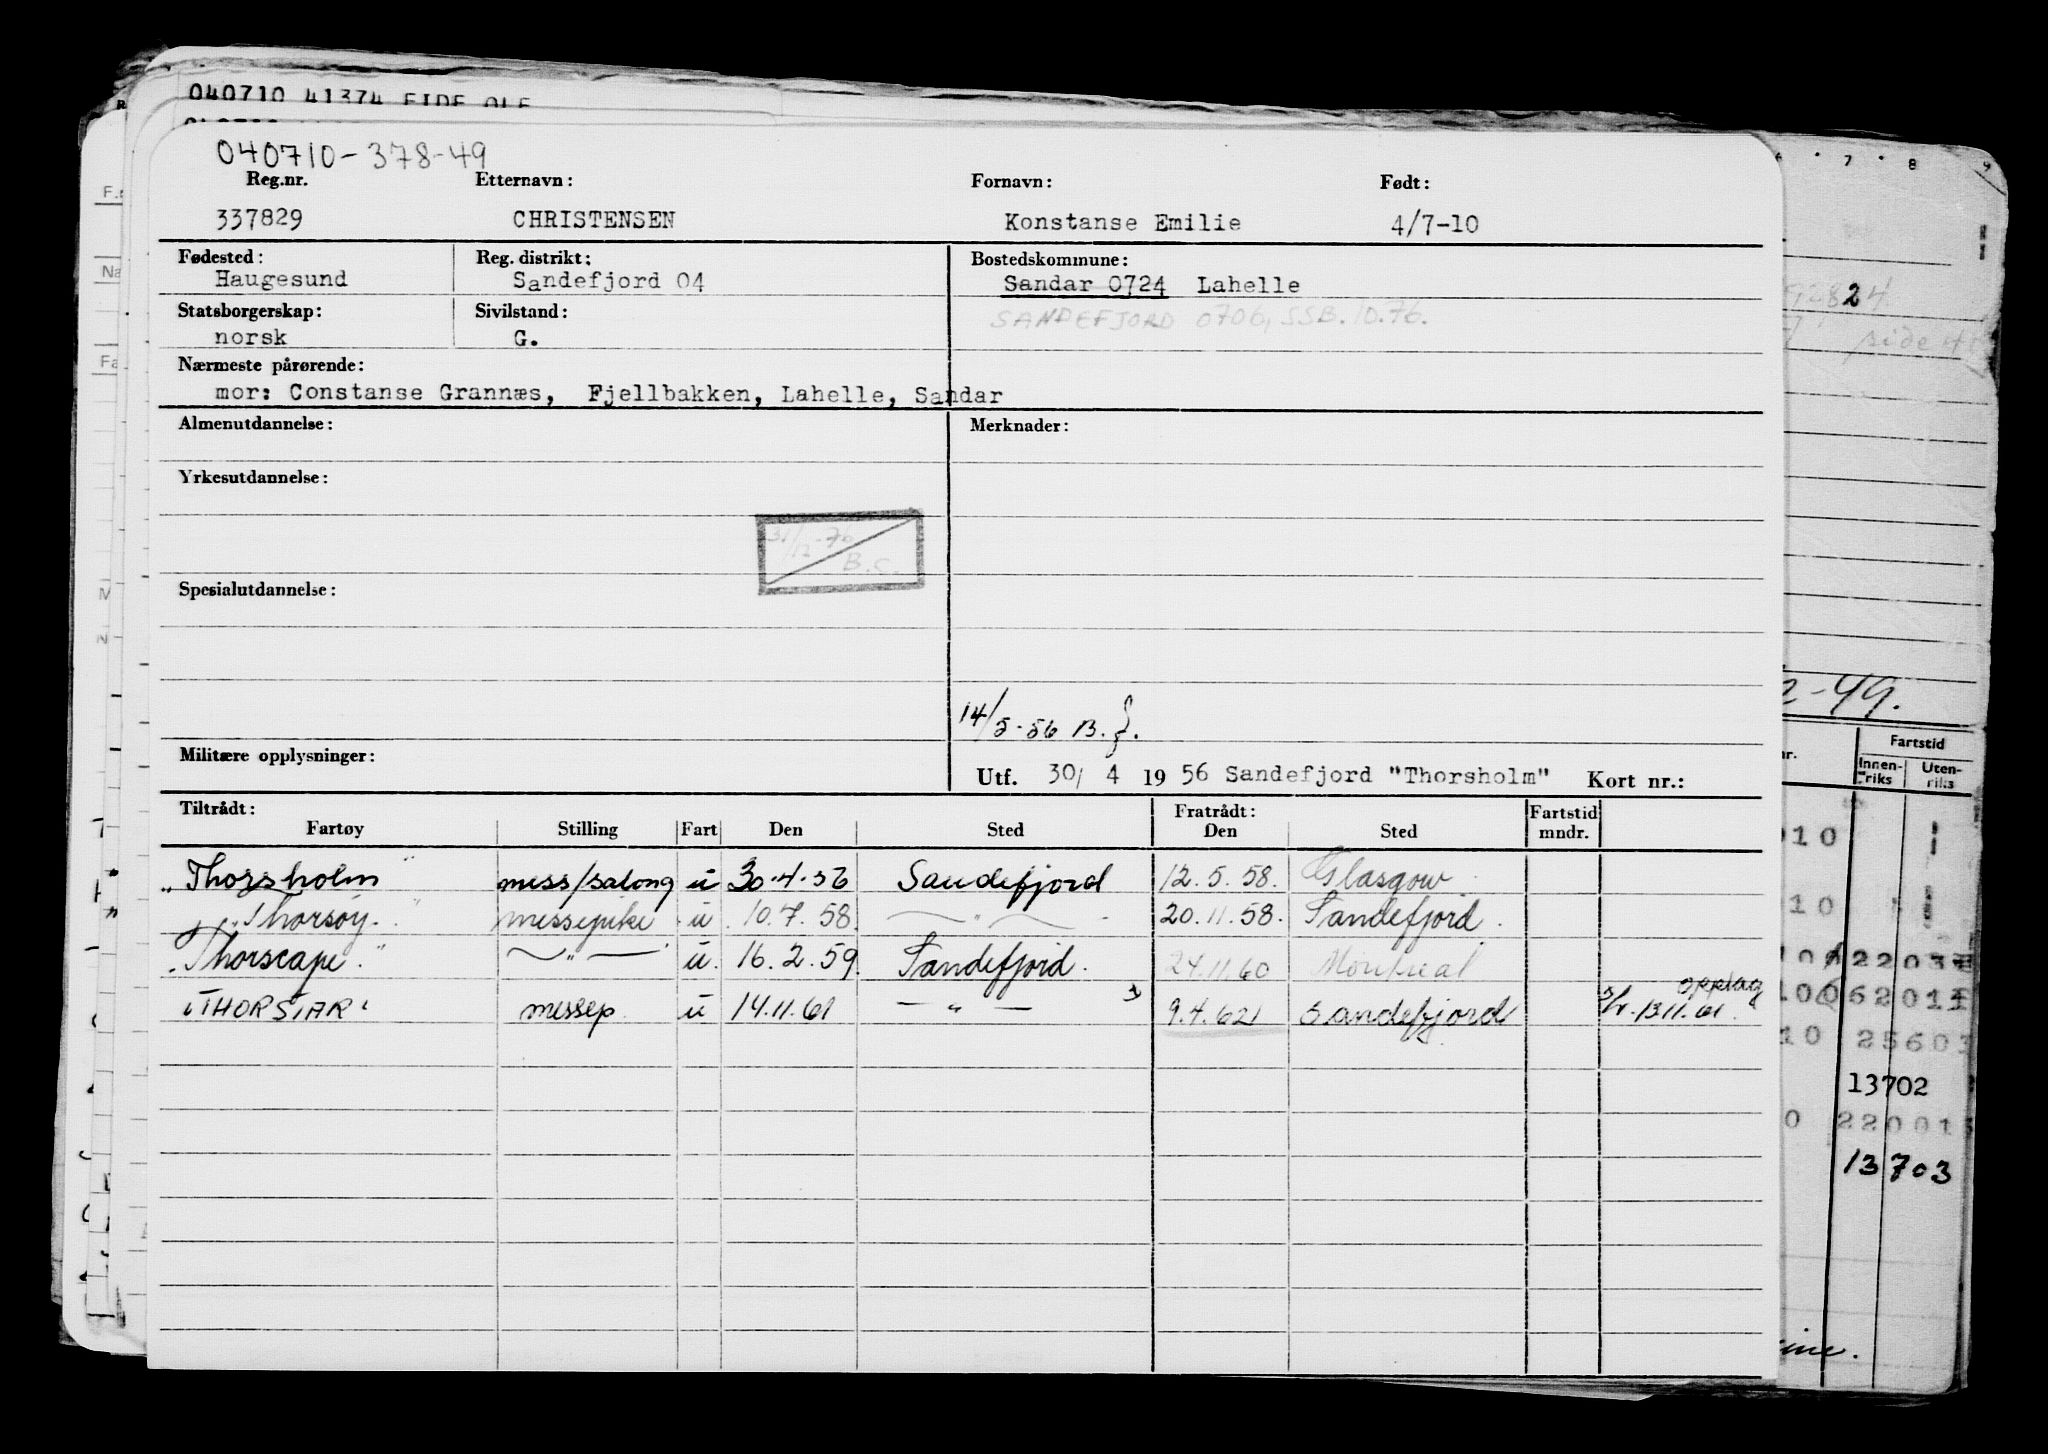 040710 41374 EIDE OLE
040710-378-49
Reg.nr. Etternavn: Fornavn: Født:
337829 CHRISTENSEN Konstanse Emilie 4/7-10
Fødested: Reg. distrikt: Bostedskommune:
Haugesund Sandefjord 04 Sandar 0724 Lahelle
Statsborgerskap: Sivilstand: SANDEFJORD 0706, SSB. 10.76.
norsk G.
Nærmeste pårørende:
mor: Constanse Grannæs, Fjellbakken, Lahelle, Sandar
Almenutdannelse: Merknader:
Yrkesutdannelse:
31/12-76
B.C.
Spesialutdannelse:
14/5-56 B.
Militære opplysninger:
Utf. 30/ 4 19 56 Sandefjord "Thorsholm" Kort nr.:
Tiltrådt: Fratrådt: Fartstid
Fartøy Stilling Fart Den Sted Den Sted mndr.
"Thorsholm" mess/salong u 30.4.56 Sandefjord 12.5.58. Glasgow
"Thorsøy." messepike u 10.7.58 — " — 20.11.58. Sandefjord.
"Thorscape." — " — u. 16.2.59. Sandefjord. 24.11.60 Montreal
"THORSTAR" messep u 14.11.61 — " — 9.4.62 Sandefjord 13.11.61. opplag
7 8 9
2-49.
Fartstid
Innen-riks Uten-riks
13702
13703